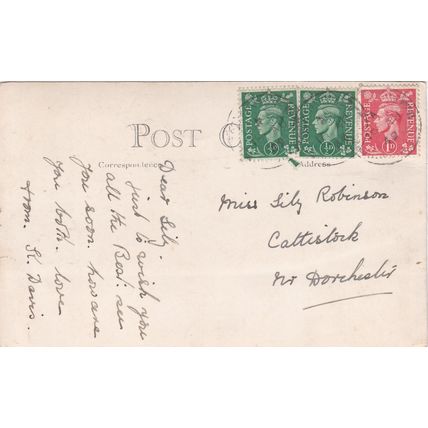 POST C
Correspondence
Address
POSTAGE REVENUE
½D
POSTAGE REVENUE
½D
POSTAGE REVENUE
1D
Dear Lily
Just to wish you
all the Best. see
you soon. how are
you both. love
from. H. Davis.
Miss Lily Robinson
Cattistock
Nr Dorchester